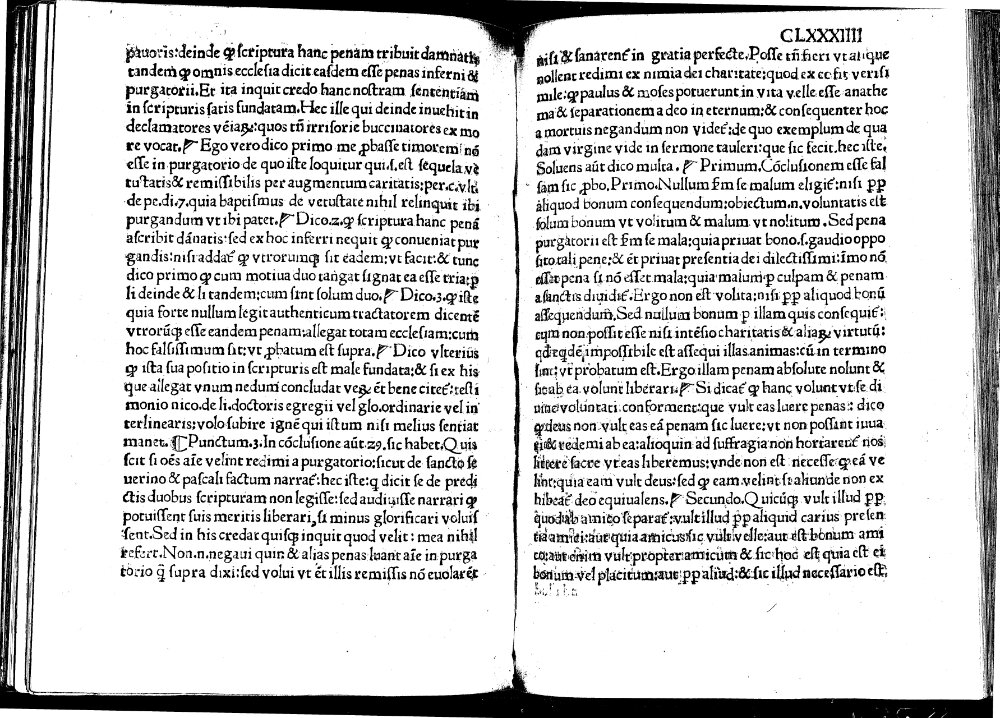 pauoris:deinde ꝙ scriptura hanc penam tribuit damnatis
tandem̃ ꝙ omnis ecclesia dicit easdem esse penas inferni &
purgatorii.Et ita inquit credo hanc nostram sententiam
in scripturis satis fundatam.Hec ille qui deinde inuehit in
declamatores vẽiaꝝ:quos tñ irrisorie buccinatores ex mo
re vocat. Ego vero dico primo me ꝓbasse timorem nõ
esse in purgatorio de quo iste loquitur qui.s.est sequela ve
tustatis & remissibilis per augmentum caritatis:per.c.vlti
de pe.di.7.quia baptismus de vetustate nihil relinquit ibi
purgandum vt ibi patet. Dico.2.ꝙ scriptura hanc penã
ascribit dãnatis:sed ex hoc inferri nequit ꝙ conueniat pur
gandis:nisi addat᷑ ꝙ vtrorumqꝫ sit eadem:vt facit:& tunc
dico primo ꝙ cum motiua duo tangat signat ea esse tria:ꝑ
li deinde & li tandem:cum sint solum duo. Dico.3.ꝙ iste
quia forte nullum legit authenticum tractatorem dicentẽ
vtrorũqꝫ esse eandem penam:allegat totam ecclesiam:cum
hoc falsissimum sit:vt ꝓbatum est supra. Dico vlterius
ꝙ ista sua positio in scripturis est male fundata:& si ex his
que allegat vnum nedum concludat veꝝ et̃ bene citet᷑:testi
monio nico.de li.doctoris egregii vel glo.ordinarie vel in
terlinearis:volo subire ignẽ qui istum nisi melius sentiat
manet. Punctum.3.In cõclusione aũt.29.sic habet.Quis
scit si oẽs aĩe velint redimi a purgatorio:sicut de sancto se
uerino & pascali factum narrat᷑:hec iste:q̃ dicit se de predi
ctis duobus scripturam non legisse:sed audiuisse narrari ꝙ
potuissent suis meritis liberari,si minus glorificari voluis
sent.Sed in his credat quisqꝫ inquit quod velit: mea nihil
refert.Non.n.negaui quin & alias penas luant aĩe in purga
torio q̃ supra dixi:sed volui vt et̃ illis remissis nõ euolaret᷑
CLXXXIIII
nisi & sanarent᷑ in gratia perfecte.Posse tñ fieri vt alique
nollent redimi ex nimia dei charitate:quod ex eo fit verisi
mile:ꝙ paulus & moses potuerunt in vita velle esse anathe
ma & separationem a deo in eternum:& consequenter hoc
a mortuis negandum non videt᷑:de quo exemplum de qua
dam virgine vide in sermone tauleri:que sic fecit.hec iste.
Soluens aũt dico multa. Primum.Cõclusionem esse fal
sam sic ꝓbo.Primo.Nullum ẜm se malum eligit᷑:nisi ꝓꝑ
aliquod bonum consequendum:obiectum.n.voluntatis est
solum bonum vt volitum & malum vt nolitum . Sed pena
purgatorii est ẜm se mala:quia priuat bono.s.gaudio oppo
sito tali pene:& et̃ priuat presentia dei dilectissimi:ĩmo nõ
esset pena si nõ esset mala:quia malum ꝑ culpam & penam
a sanctis diuidit᷑.Ergo non est volita:nisi ꝓꝑ aliquod bonũ
assequendum.Sed nullum bonum ꝑ illam quis consequit᷑:
cum non possit esse nisi intẽsio charitatis & aliaꝝ virtutũ:
qd̃ qdẽ impossibile est assequi illas animas:cũ in termino
sint:vt probatum est.Ergo illam penam absolute nolunt &
sic ab ea volunt liberari. Si dicat᷑ ꝙ hanc volunt vt se di
uine voluntati conforment:que vult eas luere penas: dico
ꝙ deus non vult eas eã penam sic luere:vt non possint iuua
ri & redemi ab ea:alioquin ad suffragia non hortarent᷑ nos
littere sacre vt eas liberemus:vnde non est necesse ꝙ eã ve
lint:quia eam vult deus:sed ꝙ eam velint si aliunde non ex
hibeat᷑ deo equiualens. Secundo.Quicũqꝫ vult illud ꝓꝑ
quod ab amico separat᷑:vult illud ꝓꝑ aliquid carius presen
tia amici:aut quia amicus sic vult velle:aut est bonum ami
co:aut enim vult propter amicum & sic hoc est quia est ei
bonum vel placitum:aut ꝓꝑ aliud:& sic illud necessario est